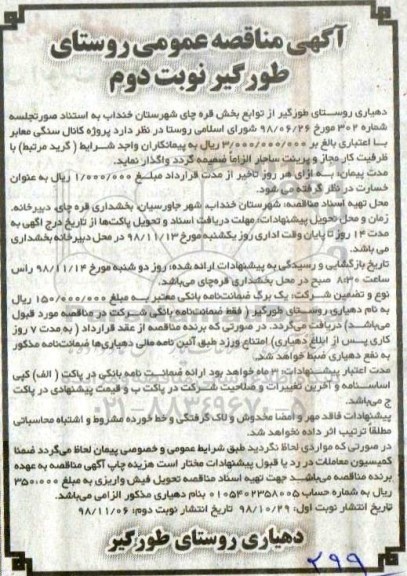 آگهی مناقصه عمومی روستای
طورگیر نوبت دوم
دهیاری روستای طورگیر از توابع بخش قره چای شهرستان خنداب به استناد صورتجلسه
شماره ۳۰۲ مورخ ۹۸/۰۶/۲۶ شورای اسلامی روستا در نظر دارد پروژه کانال سنگی معابر
با اعتباری بالغ بر ۳/۰۰۰/۰۰۰/۰۰۰ ریال به پیمانکاران واجد شرایط ( گرید مرتبط) با
ظرفیت کار مجاز و پرینت ساجار الزاماً ضمیمه گردد واگذار نماید.
مدت پیمان: به ازای هر روز تاخیر از مدت قرارداد مبلغ ۱/۰۰۰/۰۰۰ ریال به عنوان
خسارت در نظر گرفته می شود.
محل تهیه اسناد مناقصه: شهرستان خنداب، شهر جاورسیان، بخشداری قره چای، دبیرخانه.
زمان و محل تحویل پیشنهادات: مهلت دریافت اسناد و تحویل پاکت‌ها از تاریخ درج آگهی به
مدت ۱۴ روز تا پایان وقت اداری روز یکشنبه مورخ ۹۸/۱۱/۱۳ در محل دبیرخانه بخشداری
می باشد.
تاریخ بازگشایی و رسیدگی به پیشنهادات ارائه شده: روز دو شنبه مورخ ۹۸/۱۱/۱۴ راس
ساعت ۸:۳۰ صبح در محل بخشداری قره‌چای می‌باشد.
نوع و تضمین شرکت: یک برگ ضمانتنامه بانکی معتبر به مبلغ ۱۵۰/۰۰۰/۰۰۰ ریال
به نام دهیاری روستای طورگیر ( فقط ضمانتنامه بانکی شرکت در مناقصه مورد قبول
می‌باشد) دریافت می‌گردد. در صورتی که برنده مناقصه از عقد قرارداد ( به مدت ۷ روز
کاری پس از ابلاغ دهیاری) امتناع ورزد طبق آئین نامه مالی دهیاری‌ها ضمانتنامه مذکور
به نفع دهیاری ضبط خواهد شد.
مدت اعتبار پیشنهادات: ۳ ماه خواهد بود ارائه ضمانت نامه بانکی در پاکت ( الف) کپی
اساسنامه و آخرین تغییرات و صلاحیت شرکت در پاکت ب و قیمت پیشنهادی در پاکت
ج می‌باشد.
پیشنهادات فاقد مهر و امضا مخدوش و لاک گرفتگی و خط خورده مشروط و اشتباه محاسباتی
مطلقا ترتیب اثر داده نخواهد شد.
در صورتی که مواردی لحاظ نگردید طبق شرایط عمومی و خصوصی پیمان لحاظ می‌گردد ضمنا
کمیسیون معاملات در رد یا قبول پیشنهادات مختار است هزینه چاپ آگهی مناقصه به عهده
برنده مناقصه می‌باشد جهت تهیه اسناد مناقصه تحویل فیش واریزی به مبلغ ۳۵۰/۰۰۰
ریال به شماره حساب ۰۱۰۵۴۰۲۳۵۸۰۰۵ بنام دهیاری مذکور الزامی می‌باشد.
تاریخ انتشار نوبت اول: ۹۸/۱۰/۲۹ تاریخ انتشار نوبت دوم: ۹۸/۱۱/۰۶
دهیاری روستای طورگیر
۲۹۹